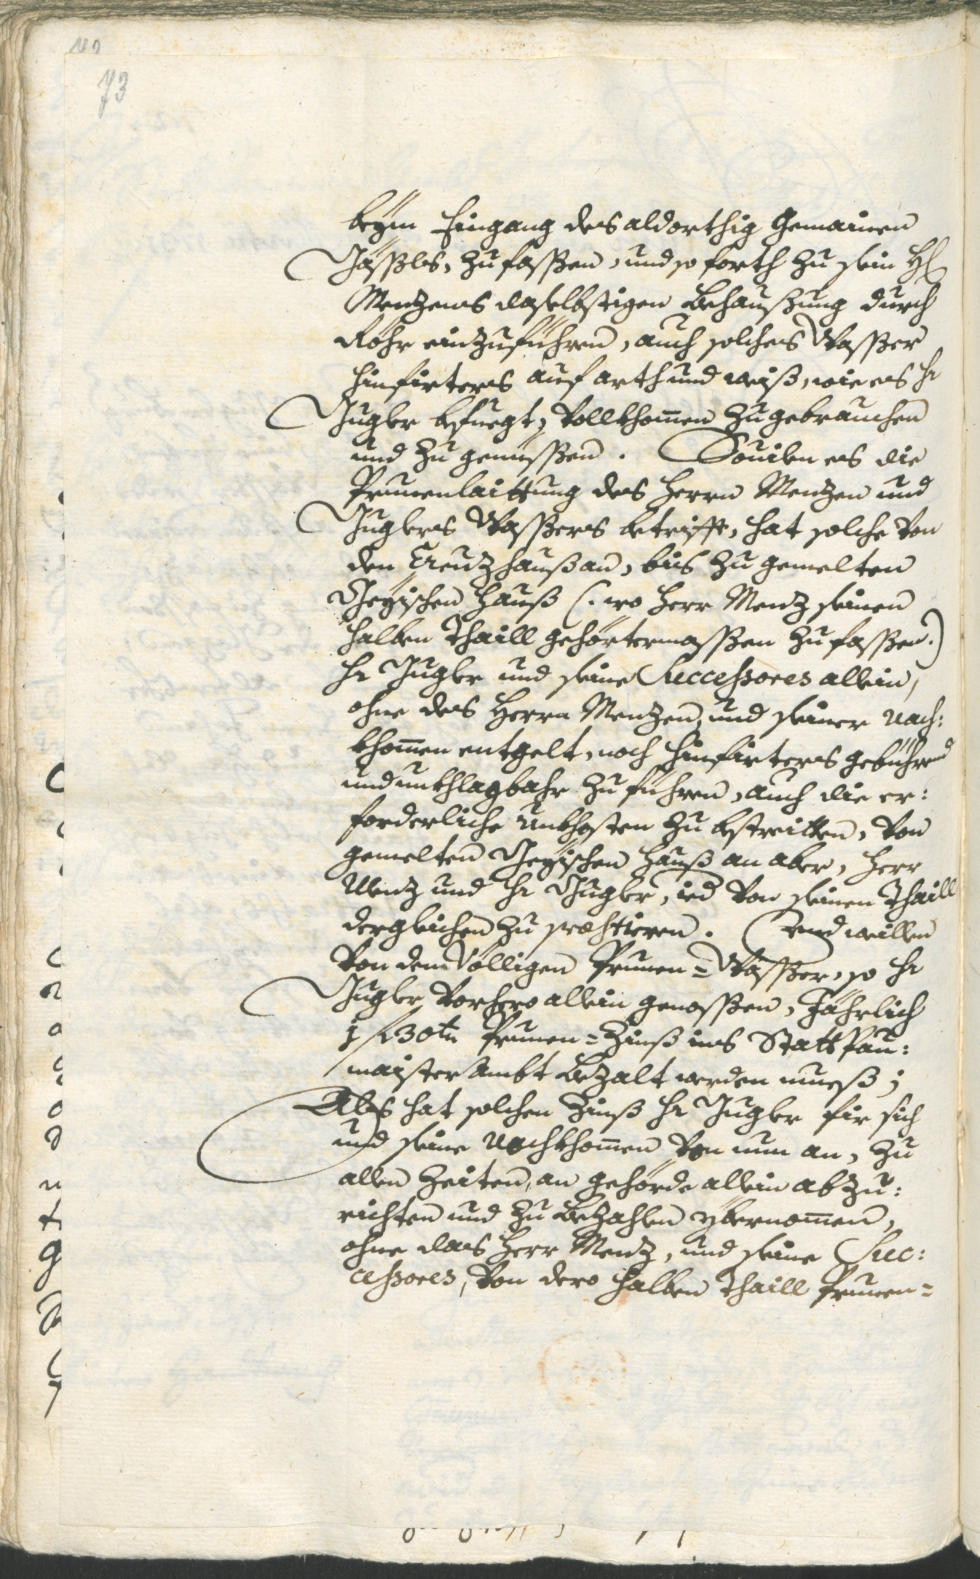 73
beÿm Eingang des aldorthig Gemainen
Gässles, zufassen, und so forth zu sein H:
Mentzens daselbstigen Behausung durch
Röhr einzuführen, auch solches Wasser
hinfürters auf arth und weiß, wie es Hr
Jugler befuegt, vollkhomen zugebrauchen
und zu genüessen. Souilen es die
Prunenlaittung des Herrn Mentzen und
Juglers Wassers betrifft, hat solche von
den Creutzhauß an, bis zu gemelten
Theÿischen Hauß (: wo Herr Mentz seinen
halben Thaill gehörtermassen zufassen:)
Hr Jugler und seine Successores allein,
ohne des Herrn Mentzen, und seiner Nach:
khomen entgelt, noch hinfürters gebührend
und unkhlagbahr zuführen, auch die er:
forderliche Unkhosten zu bestreitten, von
gemelten Theÿischen Hauß an aber, Herr
Mentz und Hr Jugler, ied von seinen Thaill
dergleichen zu præstieren. Und weillen
von dem völligen Prunen=Wasser, so Hr
Jugler vorhero allein genossen, Jährlich
1 f 30 kr Prunen=Zinß ins Statt Pau:
maister Ambt bezalt werden muess;
Als hat solchen Zinß Hr Jugler für sich
und seine Nachkhomen von nun an, zu
allen Zeiten, an gehörde allein abzu:
richten und zu bezahlen ybernomen,
ohne das Herr Mentz, und seine Suc:
cessores, von dero halben Thaill Prunen=